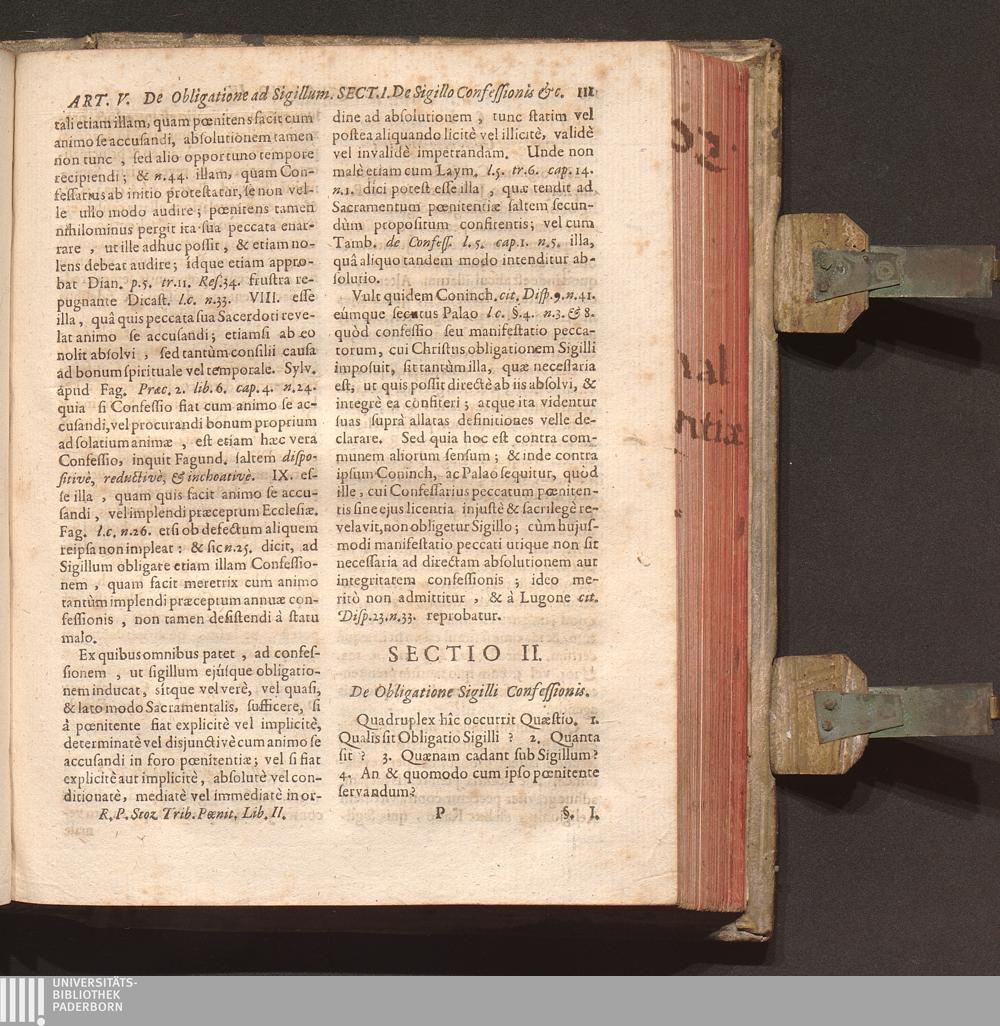 ART. V. De Obligatione ad Sigillum. SECT. I. De Sigillo Confeſſionis &c. 111
tali etiam illam, quam pœnitens facit cum
animo ſe accuſandi, abſolutionem tamen
non tunc , ſed alio opportuno tempore
recipiendi; & n.44. illam, quam Con-
feſſarius ab initio proteſtatur, ſe non vel-
le ullo modo audire; pœnitens tamen
nihilominus pergit ita ſua peccata enar-
rare , ut ille adhuc poſſit , & etiam no-
lens debeat audire; idque etiam appro-
bat Dian. p.5. tr.11. Reſ.34. fruſtra re-
pugnante Dicaſt. l.c. n.33. VIII. eſſe
illa , quâ quis peccata ſua Sacerdoti reve-
lat animo ſe accuſandi; etiamſi ab eo
nolit abſolvi , ſed tantùm conſilii cauſa
ad bonum ſpirituale vel temporale. Sylv.
apud Fag. Præc. 2. lib. 6. cap. 4. n.24.
quia ſi Confeſſio fiat cum animo ſe ac-
cuſandi, vel procurandi bonum proprium
ad ſolatium animæ , eſt etiam hæc vera
Confeſſio, inquit Fagund. ſaltem diſpo-
ſitivè, reductivè, & inchoativè. IX. eſ-
ſe illa , quam quis facit animo ſe accu-
ſandi , vel implendi præceptum Eccleſiæ.
Fag. l.c. n.26. etſi ob defectum aliquem
reipſa non impleat : & ſic n.25. dicit, ad
Sigillum obligare etiam illam Confeſſio-
nem , quam facit meretrix cum animo
tantùm implendi præceptum annuæ con-
feſſionis , non tamen deſiſtendi à ſtatu
malo.
Ex quibus omnibus patet , ad confeſ-
ſionem , ut ſigillum ejúſque obligatio-
nem inducat, ſitque vel verè, vel quaſi,
& lato modo Sacramentalis, ſufficere, ſi
à pœnitente fiat explicitè vel implicitè,
determinatè vel disjunctivè cum animo ſe
accuſandi in foro pœnitentiæ; vel ſi fiat
explicitè aut implicitè, abſolutè vel con-
ditionatè, mediatè vel immediatè in or-
R. P. Stoz Trib. Pœnit. Lib. II.
dine ad abſolutionem , tunc ſtatim vel
poſtea aliquando licitè vel illicitè, validè
vel invalidè impetrandam. Unde non
malè etiam cum Laym. l.5. tr.6. cap. 14.
n.1. dici poteſt eſſe illa , quæ tendit ad
Sacramentum pœnitentiæ ſaltem ſecun-
dùm propoſitum confitentis; vel cum
Tamb. de Confeſſ. l. 5. cap.1. n.5. illa,
quâ aliquo tandem modo intenditur ab-
ſolutio.
Vult quidem Coninch. cit. Diſp. 9. n. 41.
eúmque ſecutus Palao l.c. §.4. n.3. & 8.
quòd confeſſio ſeu manifeſtatio pecca-
torum, cui Chriſtus obligationem Sigilli
impoſuit, ſit tantùm illa, quæ neceſſaria
eſt, ut quis poſſit directè ab iis abſolvi, &
integrè ea confiteri ; atque ita videntur
ſuas ſuprà allatas definitiones velle de-
clarare. Sed quia hoc eſt contra com-
munem aliorum ſenſum ; & inde contra
ipſum Coninch, ac Palao ſequitur, quòd
ille , cui Confeſſarius peccatum pœniten-
tis ſine ejus licentia injuſtè & ſacrilegè re-
velavit, non obligetur Sigillo; cùm hujuſ-
modi manifeſtatio peccati utique non ſit
neceſſaria ad directam abſolutionem aut
integritatem confeſſionis ; ideo me-
ritò non admittitur , & à Lugone cit.
Diſp.23.n.33. reprobatur.
SECTIO II.
De Obligatione Sigilli Confeſſionis.
Quadruplex hîc occurrit Quæſtio. 1.
Qualis ſit Obligatio Sigilli ? 2. Quanta
ſit ? 3. Quænam cadant ſub Sigillum?
4. An & quomodo cum ipſo pœnitente
ſervandum?
P §. I.
UNIVERSITÄTS-
BIBLIOTHEK
PADERBORN